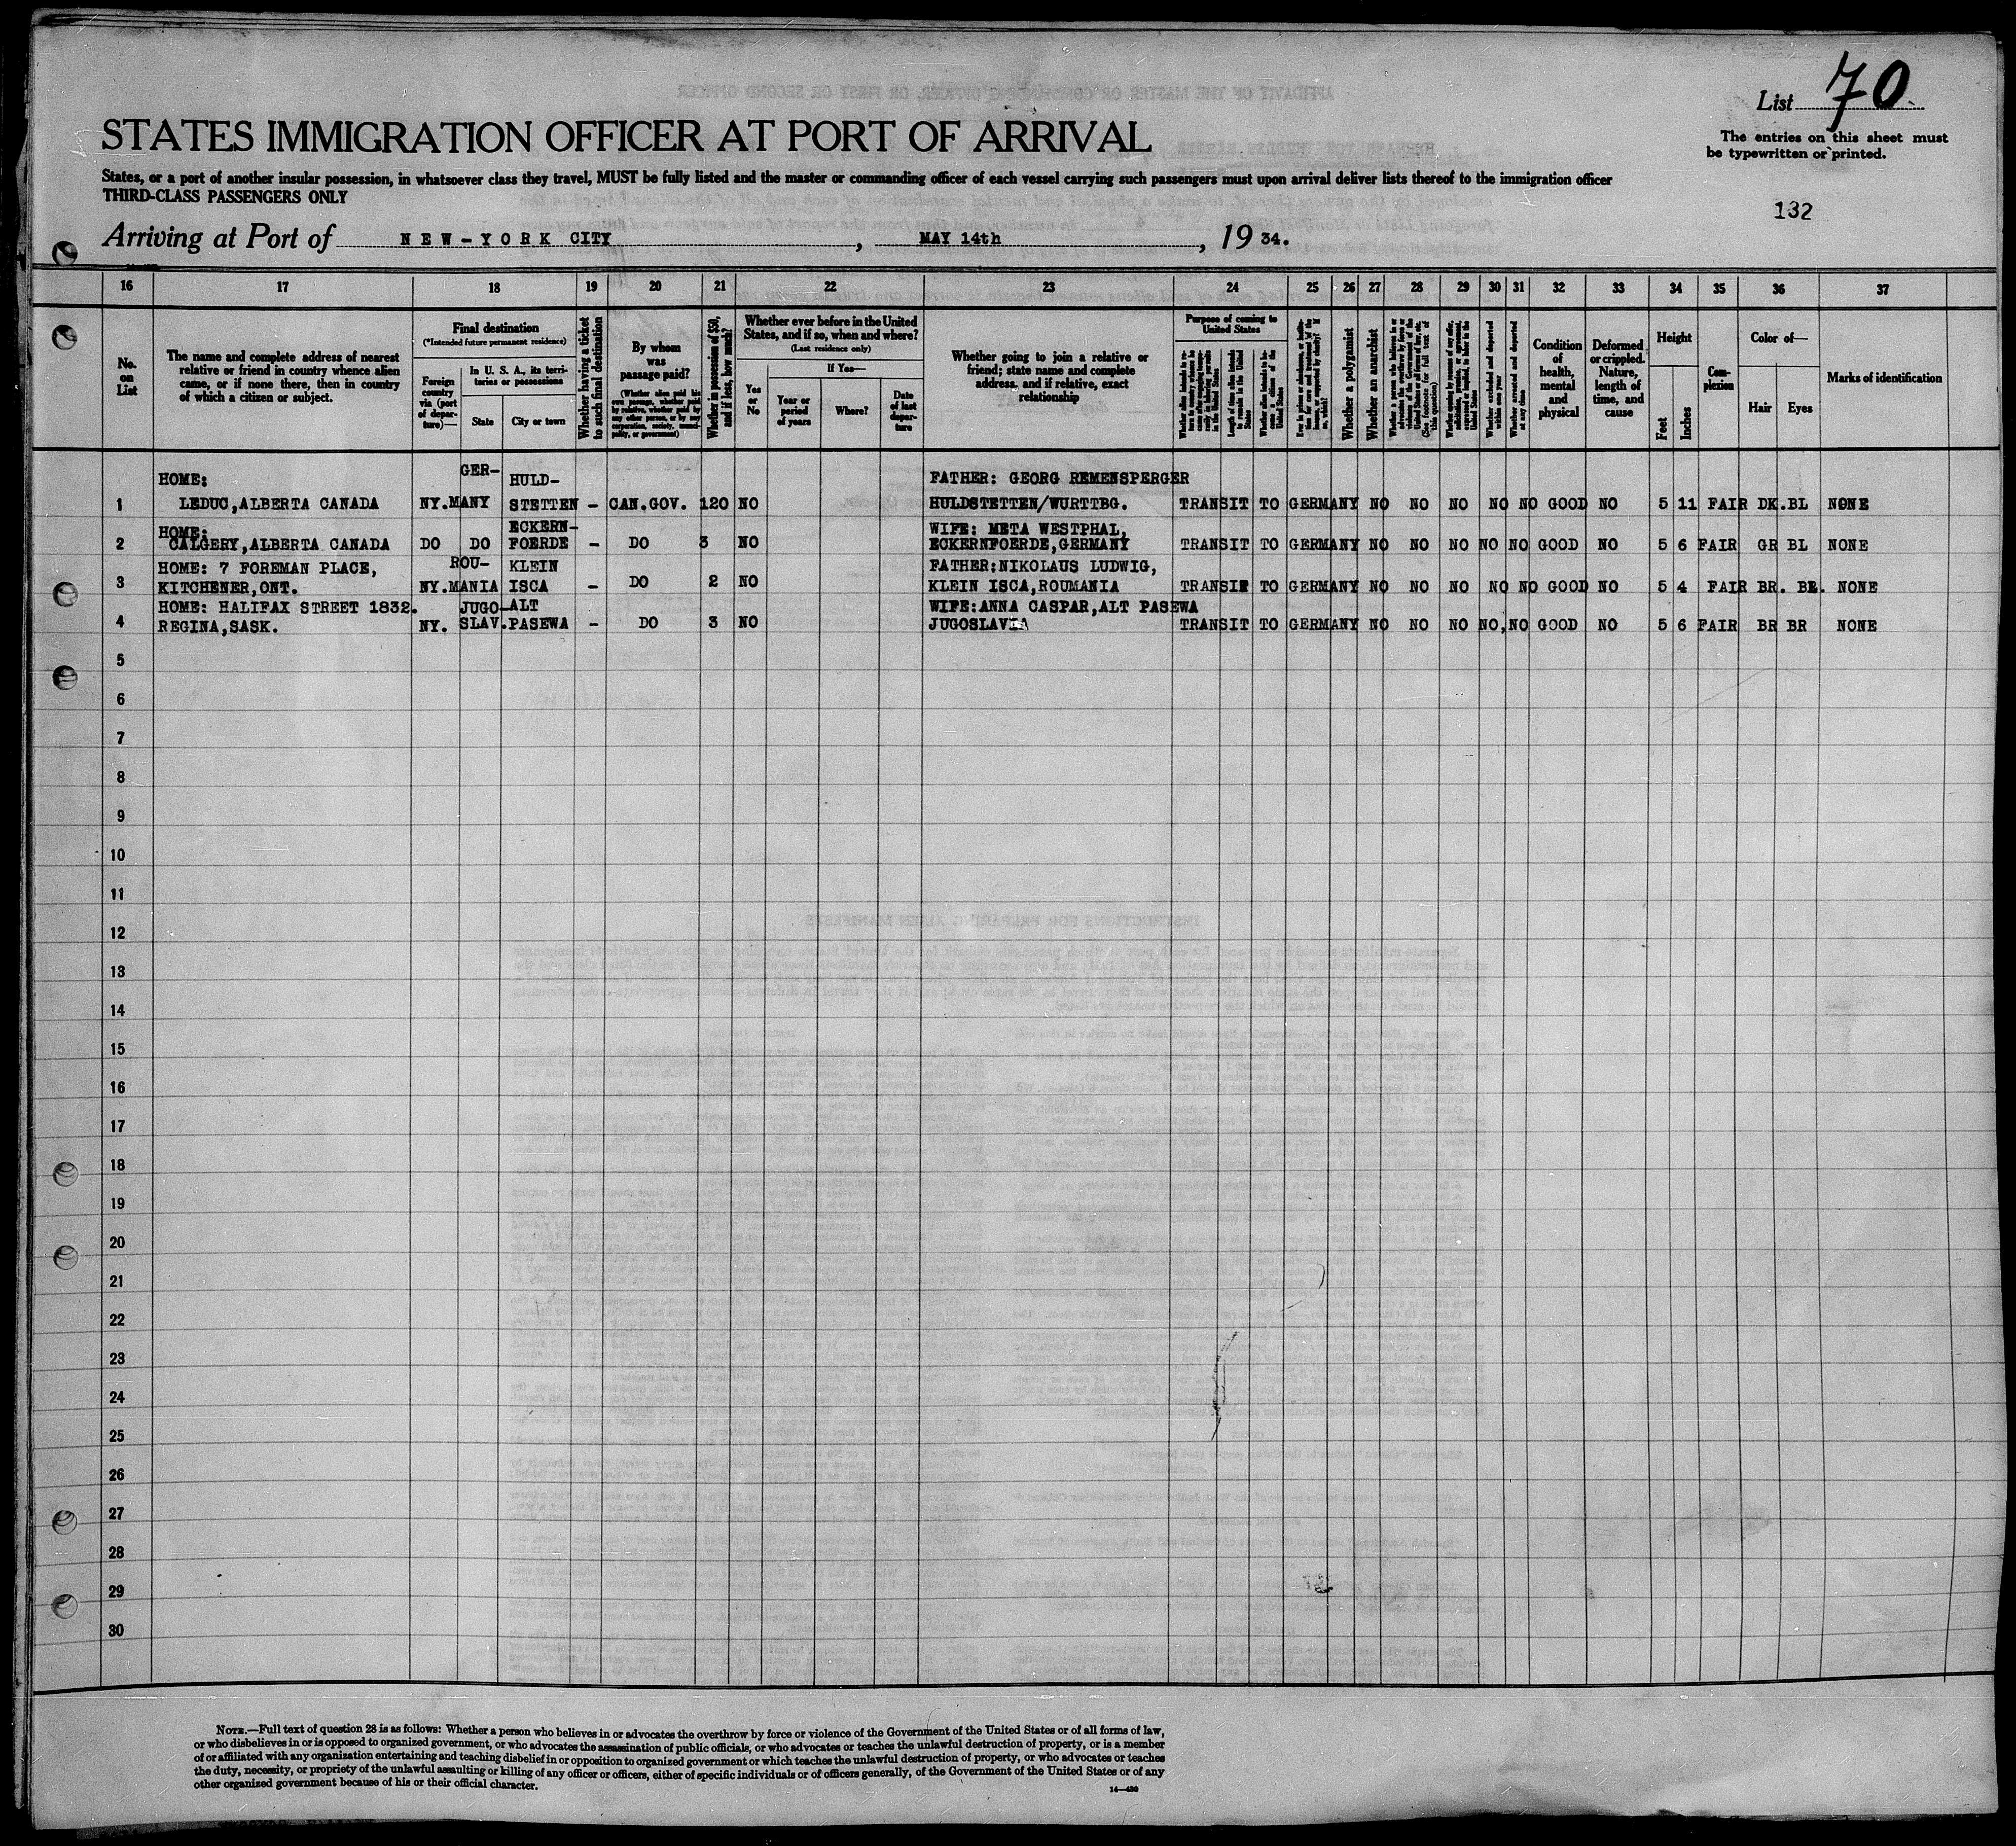 List 70
STATES IMMIGRATION OFFICER AT PORT OF ARRIVAL
The entries on this sheet must
be typewritten or printed.
States, or a port of another insular possession, in whatsoever class they travel, MUST be fully listed and the master or commanding officer of each vessel carrying such passengers must upon arrival deliver lists thereof to the immigration officer
THIRD-CLASS PASSENGERS ONLY
132
Arriving at Port of NEW-YORK CITY, MAY 14th, 19 34.
16 17 18 19 20 21 22 23 24 25 26 27 28 29 30 31 32 33 34 35 36 37
No. on List
The name and complete address of nearest relative or friend in country whence alien came, or if none there, then in country of which a citizen or subject.
Final destination
(*Intended future permanent residence)
Foreign country via (port of departure)—
In U. S. A., its territories or possessions
State
City or town
Whether having a ticket to such final destination
By whom was passage paid?
(Whether alien paid his own passage, whether paid by relative, whether paid by any other person, or by any corporation, society, municipality, or government)
Whether in possession of $50, and if less, how much?
Whether ever before in the United States, and if so, when and where?
(Last residence only)
Yes or No
If Yes—
Year or period of years
Where?
Date of last departure
Whether going to join a relative or friend; state name and complete address, and if relative, exact relationship
Purpose of coming to United States
Length of time alien intends to remain in the United States
Whether alien intends to become a citizen of the United States
Whether a polygamist
Whether an anarchist
Whether arrested and deported at any time
Condition of health, mental and physical
Deformed or crippled. Nature, length of time, and cause
Height
Feet
Inches
Complexion
Color of—
Hair
Eyes
Marks of identification
1 HOME: LEDUC,ALBERTA CANADA NY. GER-MANY HULD-STETTEN - CAN.GOV. 120 NO FATHER: GEORG REMENSPERGER HULDSTETTEN/WURTTBG. TRANSIT TO GERMANY NO NO NO NO NO GOOD NO 5 11 FAIR DK.BL NONE
2 HOME: CALGERY,ALBERTA CANADA DO DO ECKERN-FOERDE - DO 3 NO WIFE: META WESTPHAL, ECKERNFOERDE,GERMANY TRANSIT TO GERMANY NO NO NO NO NO GOOD NO 5 6 FAIR GR BL NONE
3 HOME: 7 FOREMAN PLACE, KITCHENER,ONT. NY. ROU-MANIA KLEIN ISCA - DO 2 NO FATHER:NIKOLAUS LUDWIG, KLEIN ISCA,ROUMANIA TRANSIT TO GERMANY NO NO NO NO NO GOOD NO 5 4 FAIR BR. BR. NONE
4 HOME: HALIFAX STREET 1832. REGINA,SASK. NY. JUGO-SLAV. ALT PASEWA - DO 3 NO WIFE:ANNA CASPAR,ALT PASEWA JUGOSLAVIA TRANSIT TO GERMANY NO NO NO NO,NO GOOD NO 5 6 FAIR BR BR NONE
5
6
7
8
9
10
11
12
13
14
15
16
17
18
19
20
21
22
23
24
25
26
27
28
29
30
NOTE.—Full text of question 28 is as follows: Whether a person who believes in or advocates the overthrow by force or violence of the Government of the United States or of all forms of law,
or who disbelieves in or is opposed to organized government, or who advocates the assassination of public officials, or who advocates or teaches the unlawful destruction of property, or is a member
of or affiliated with any organization entertaining and teaching disbelief in or opposition to organized government or which teaches the unlawful destruction of property, or who advocates or teaches
the duty, necessity, or propriety of the unlawful assaulting or killing of any officer or officers, either of specific individuals or of officers generally, of the Government of the United States or of any
other organized government because of his or their official character.
14—430